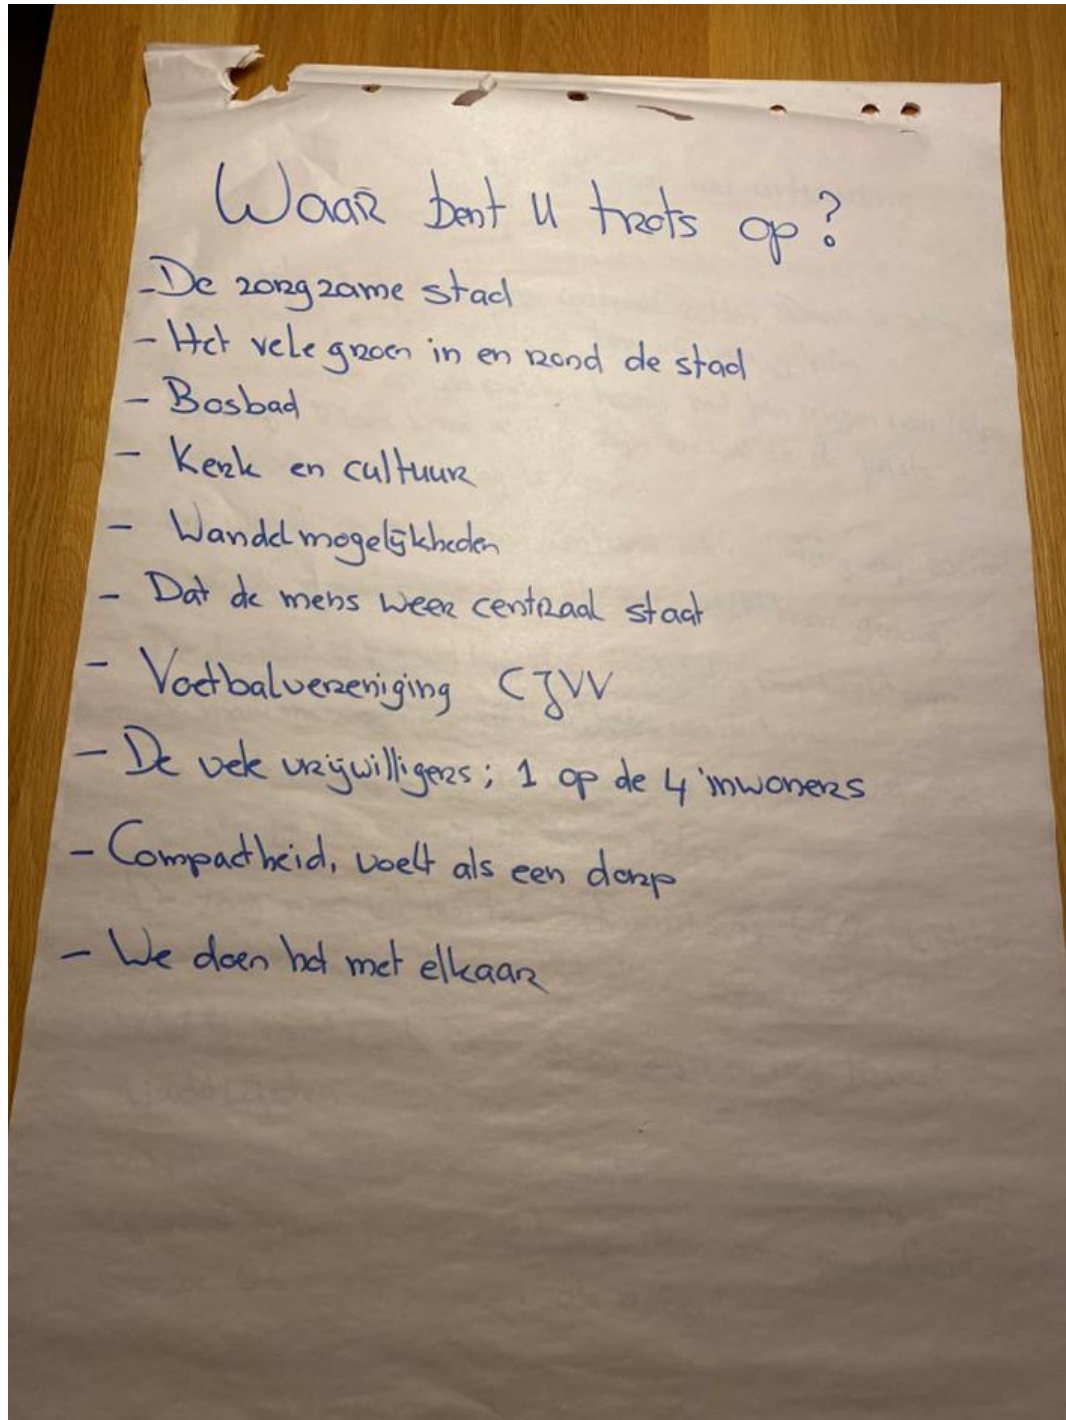 Waar bent u trots op?
- De zorgzame stad
- Het vele groen in en rond de stad
- Bosbad
- Kerk en cultuur
- Wandelmogelijkheden
- Dat de mens weer centraal staat
- Voetbalvereniging CJVV
- De vele vrijwilligers; 1 op de 4 inwoners
- Compactheid, voelt als een dorp
- We doen het met elkaar